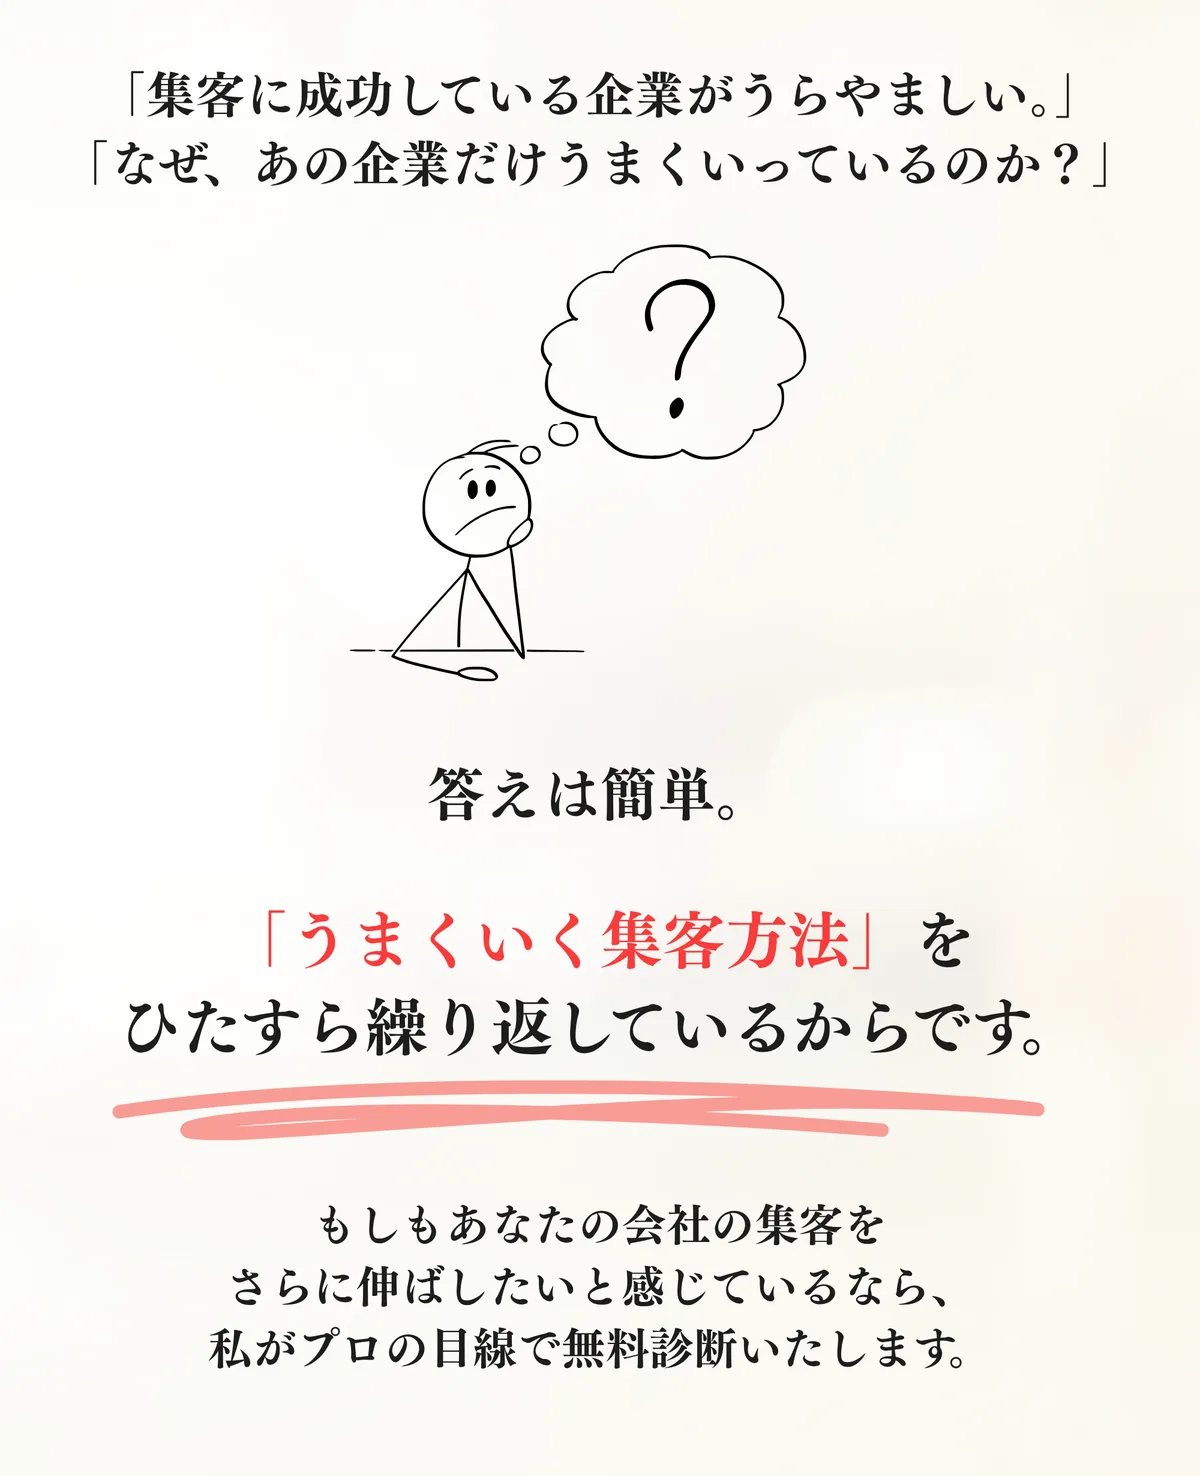 「集客に成功している企業がうらやましい。」
「なぜ、あの企業だけうまくいっているのか？」
?
答えは簡単。
「うまくいく集客方法」を
ひたすら繰り返しているからです。
もしもあなたの会社の集客を
さらに伸ばしたいと感じているなら、
私がプロの目線で無料診断いたします。